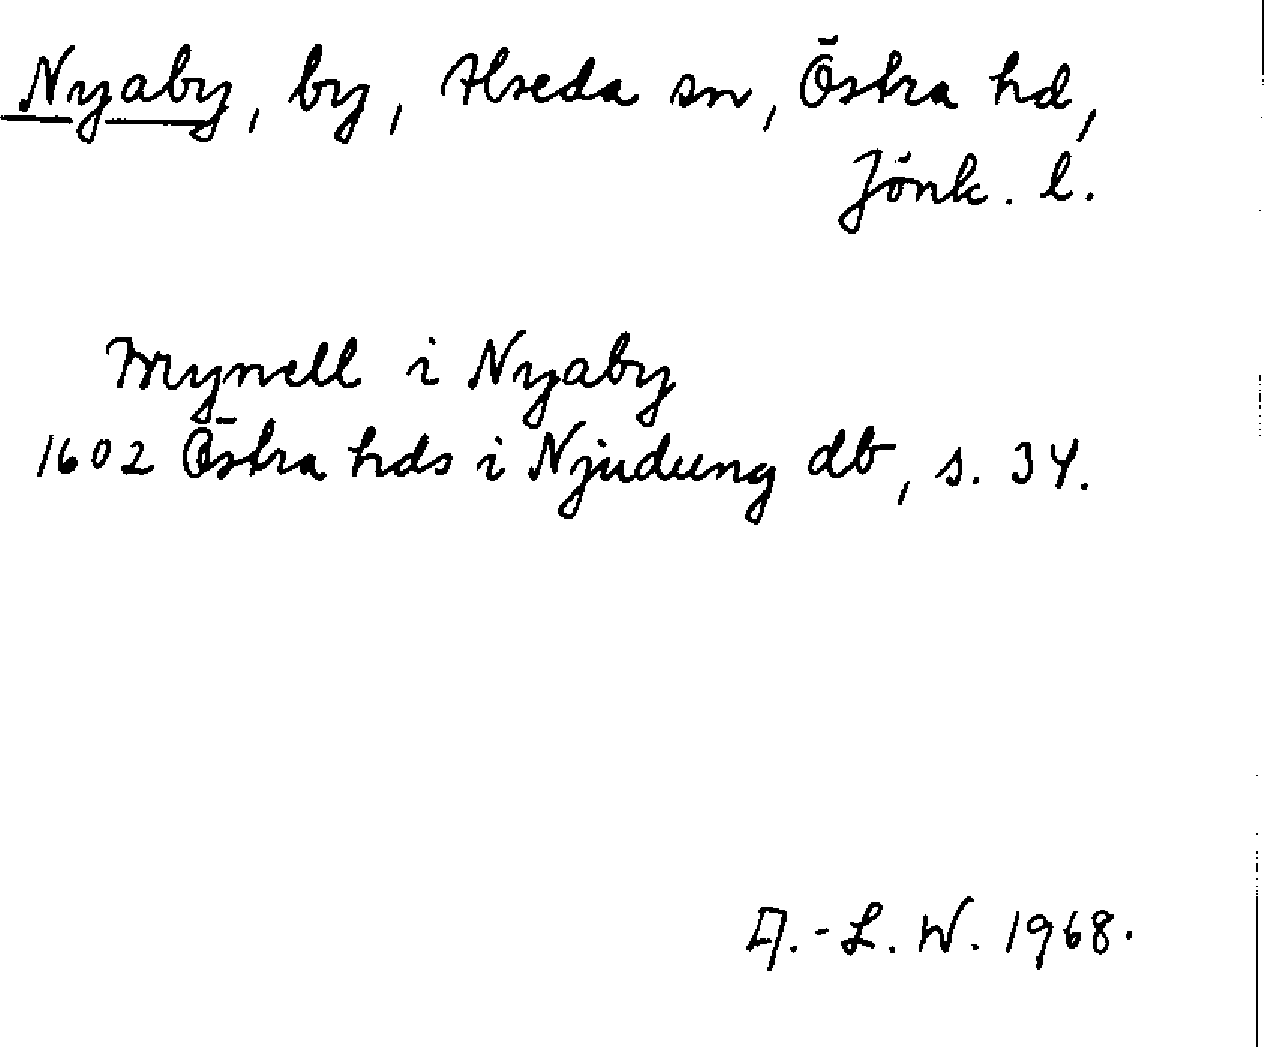 Nyaby, by, Alseda sn, Östra hd,
Jönk. l.
Mynell i Nyaby
1602 Östra hds i Njudung db, s. 34.
A.-L. W. 1968.